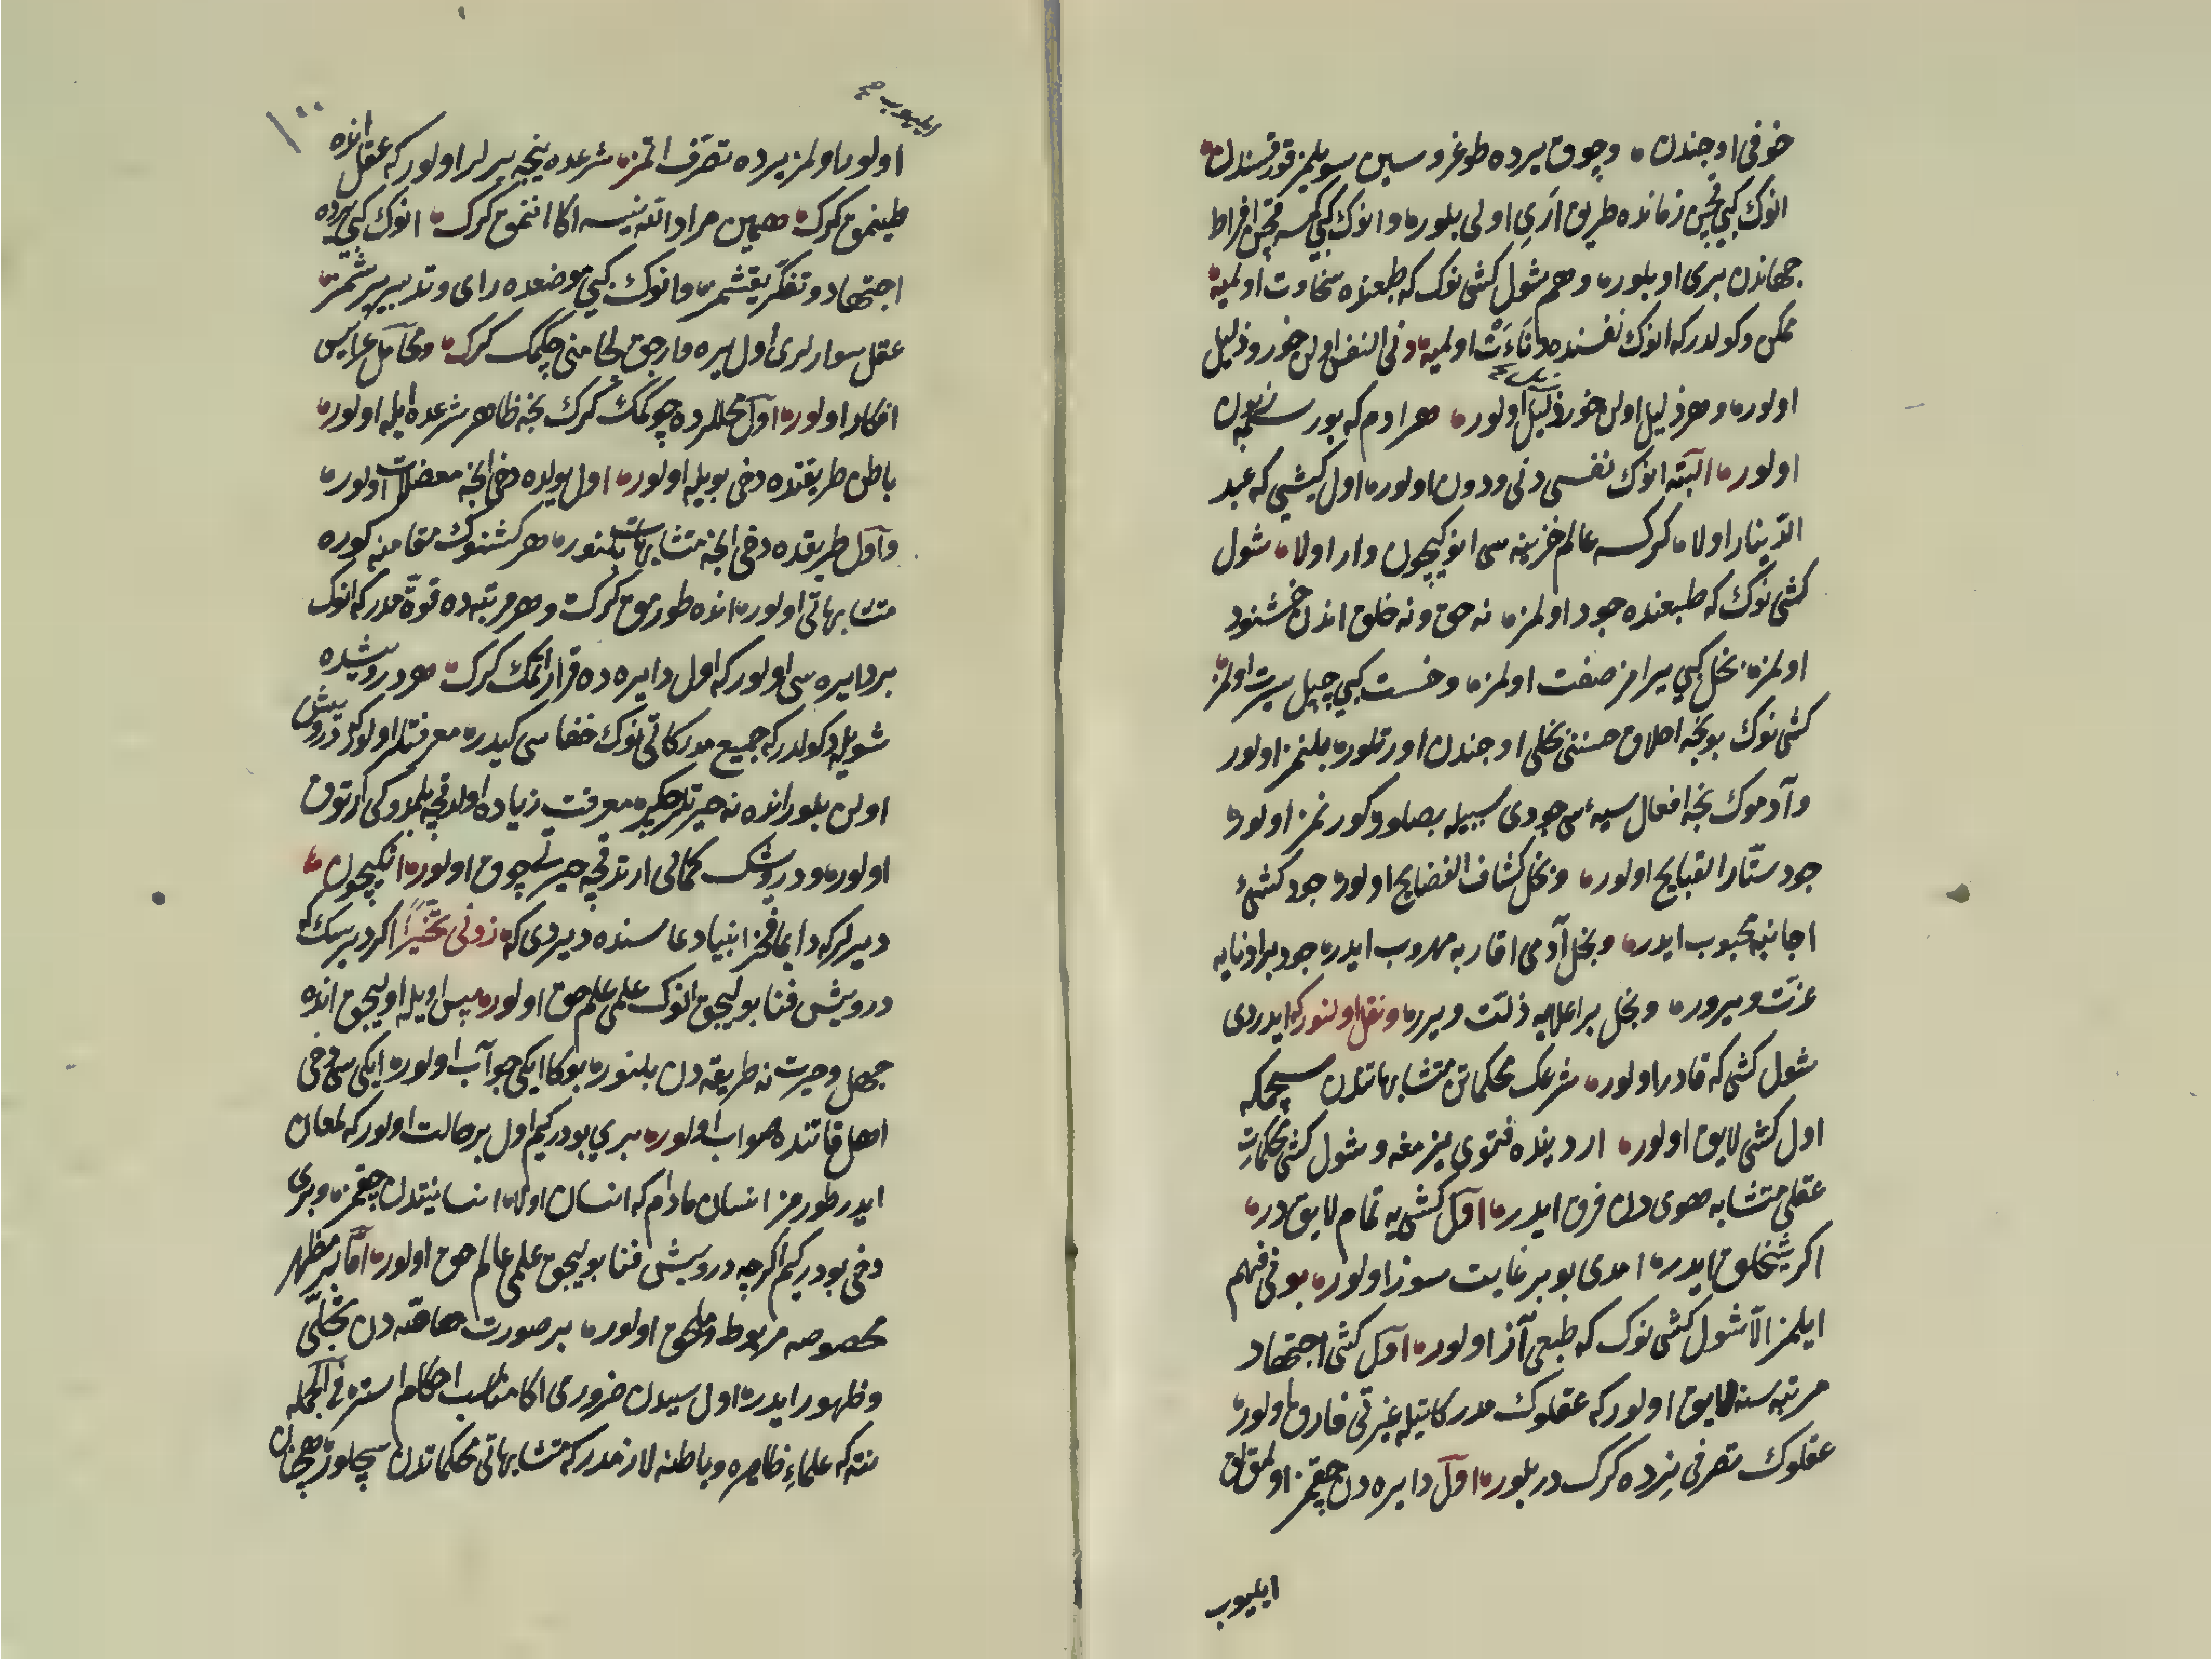 خوفی اوجندن وچوق یرده طوغرو سین سویلمز قورقسندن
انوک کبی قچن زمانده طریق اری اولی بلور وانوک کبی کمسه قچن افراط
جهاندن بری اوبلور وهم شول کشی نوک که طبعنده سخاوت اولمیه
ممکن دکولدر که انوک نفسنده دناءت اولمیه دنی النفس اولن خور وذلیل
اولور وهر ذلیل اولن خور ذلیل اولور هر ادم که بور
اولور البته انوک نفسی دنی ودون اولور اول کیشی که عبد
الدینار اولا کرکسه عالم خزینه سی انوکیچون وار اولا شول
کشی نوک که طبعنده جود اولمز نه حق ونه خلق اندن خشنود
اولمز بخل کبی یرامز صفت اولمز وخست کبی چپل سیرت اولمز
کشی نوک بونجه اخلاق حسننی بخلی اوجندن اورتلور بلنمز اولور
وآدموک نجه افعال سیۀ سی جودی سببیله بصلور کورنمز اولور
جود ستار القبایح اولور وبخل کشاف الفضایح اولور جود کشیی
اجانبه محبوب ایدر وبخل آدمی اقاربه مهروب ایدر جود بر ادنایه
عزت ویرور وبخل بر اعلایه ذلت ویرر ونقل اولنور که ایدردی
شول کشی که قادر اولور شرعک محکماتن متشابهاتندن سچمکه
اول کشی لایق اولور ار دیننده فتوی یزمغه وشول کشی محکمات
عقلی متشابه هوی دن فرق ایدر اول کشی یه تمام لایق در
اکر شیخلق ایدر امدی بو بر غایت سوز اولور بونی فهم
ایلمز الا شول کشی نوک که طبعی آذ اولور اول کشی اجتهاد
مرتبه سنه لایق اولور که عقلوک مدرکاتیله غیرتی فارق اولور
عقلوک تصرفی نرده کرک در بلور اول دایره دن چقمز اولمق
ایلیوب
ایلیوب صح
۱۰۰
اولور اولمز یرده تصرف اتمز شرعده نیجه یرلر اولور که عقل انده
طینمق کرک همین مراد الله نیسه اکا اننمق کرک انوک کبی یرده
اجتهاد وتفکر یقشمز وانوک کبی موضعده رای وتدبیر یرشمز
عقل سوارلری اول یره وارجق لجامنی چکمک کرک ومحامل عرایس
افکار اولور اول محللرده چوکمک کرک نجه ظاهر شرعده ایله اولور
باطن طریقتده دخی بویله اولور اول یولده دخی انجه معضلات اولور
واول طریقده دخی انجه متشابهات بلنور هر کشنوک مقامنه کوره
متشابهاتی اولور انده طورمق کرک وهر مرتبه ده قوۀ مدرکه انوک
بر دایره سی اولور که اول دایره ده قرار اتمک کرک هر درویشده
شویله دکولدر که جمیع مدرکاتی نوک خفاسی کیدر معرفتلر اولور که درویش
اولن بلور انده نه حیرتلر چکر معرفت زیاده اولدقچه بلمدوکی ارتوق
اولور ودرویشک کمالی ارتدقچه حیرتی چوق اولور انکیچون
دیرلر که دایما فخر انبیا دعاسنده دیردی که زدنی تحیرا اکر دیرسک که
درویش فنا بولیجق انوک علمی علم حق اولور پس اویله اولیجق انده
جهل وحیرت نه طریقه دن بلنور بوکا ایکی جوآب اولور ایکی سی دخی
اهل قاتنده صواب اولور بری بودر کیم اول بر حالت اولور که لمعان
ایدر طورمز انسان مادام که انسان اولا انسانیتدن چقمز وبری
دخی بودر کیم اکرچه درویش فنا بولیجق علمی عالم حق اولور اما بر مظهر
مخصوصه مربوط وملحق اولور بر صورت خاصه دن تجلی
وظهور ایدر اول سیبدن ضروری اکا مناسب احکام استر فی الجمله
نته که علماء ظاهره وباطنه لازمدر که متشابهاتی محکماتدن سچلور